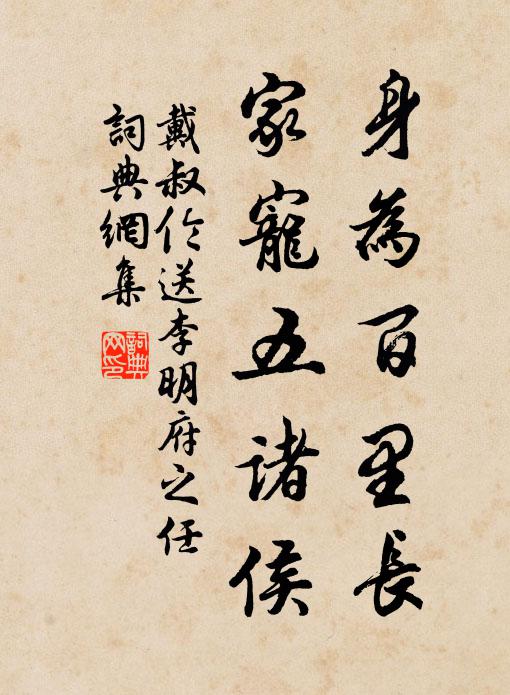 身為百里長
家寵五諸侯
戴叔伦送李明府之任
詞典網集
詞典
网印